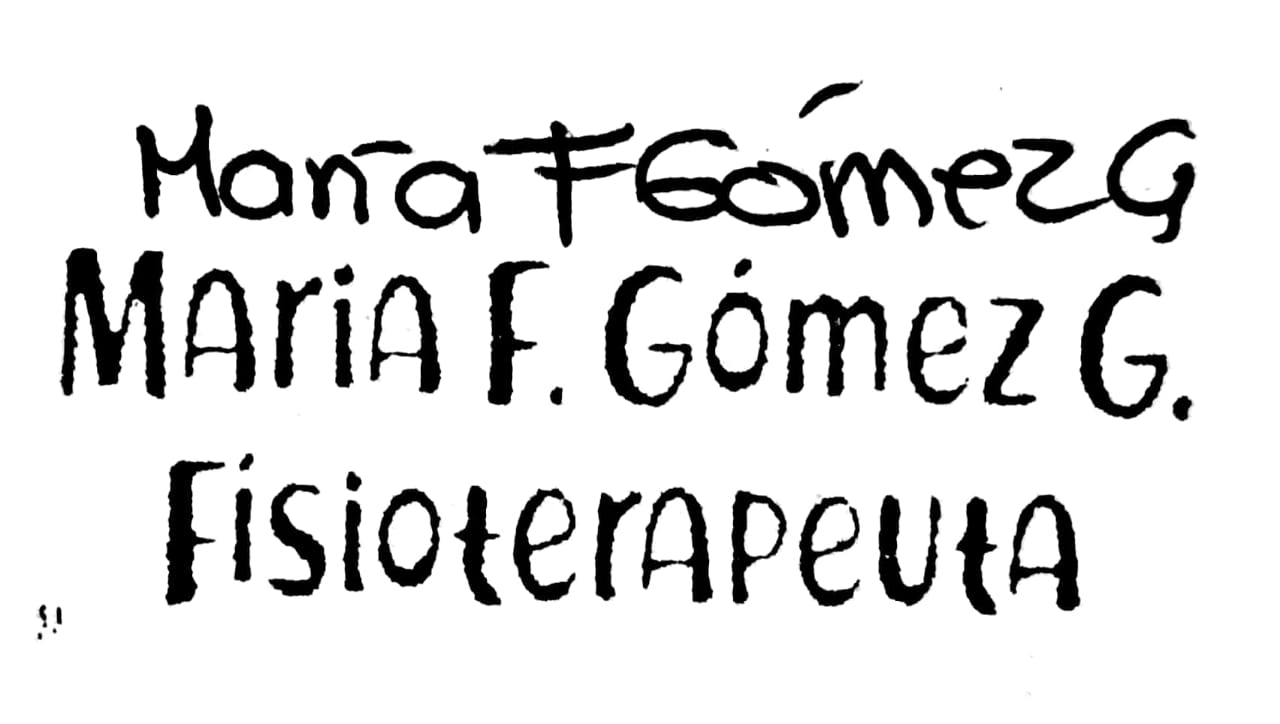 María F Gómez G
Maria F. Gómez G.
Fisioterapeuta